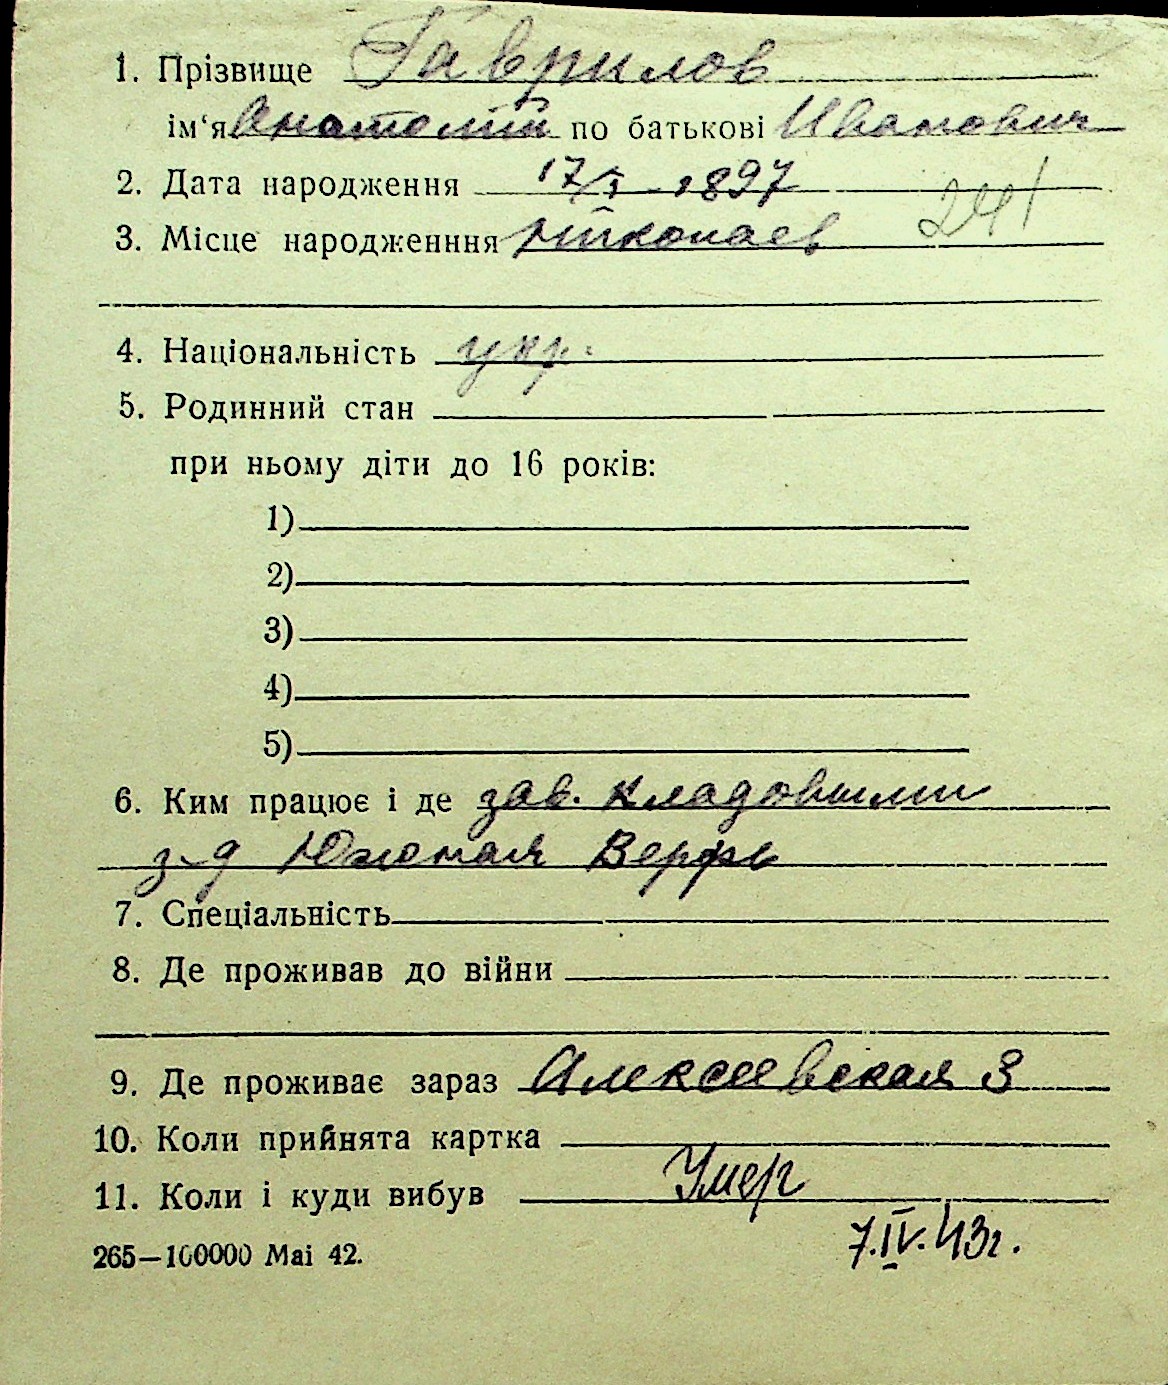 1. Прізвище Гаврилов
ім‘я Анатолий по батькові Иванович
2. Дата народження 17/I - 1897
241
3. Місце народженння Николаев
4. Національність укр.
5. Родинний стан
при ньому діти до 16 років:
1)
2)
3)
4)
5)
6. Ким працює і де зав. кладовыми
з-д Южная Верфь
7. Спеціальність
8. Де проживав до війни
9. Де проживає зараз Алексеевская 3
10. Коли прийнята картка
11. Коли і куди вибув Умер
7.IV.43г.
265—100000 Mai 42.